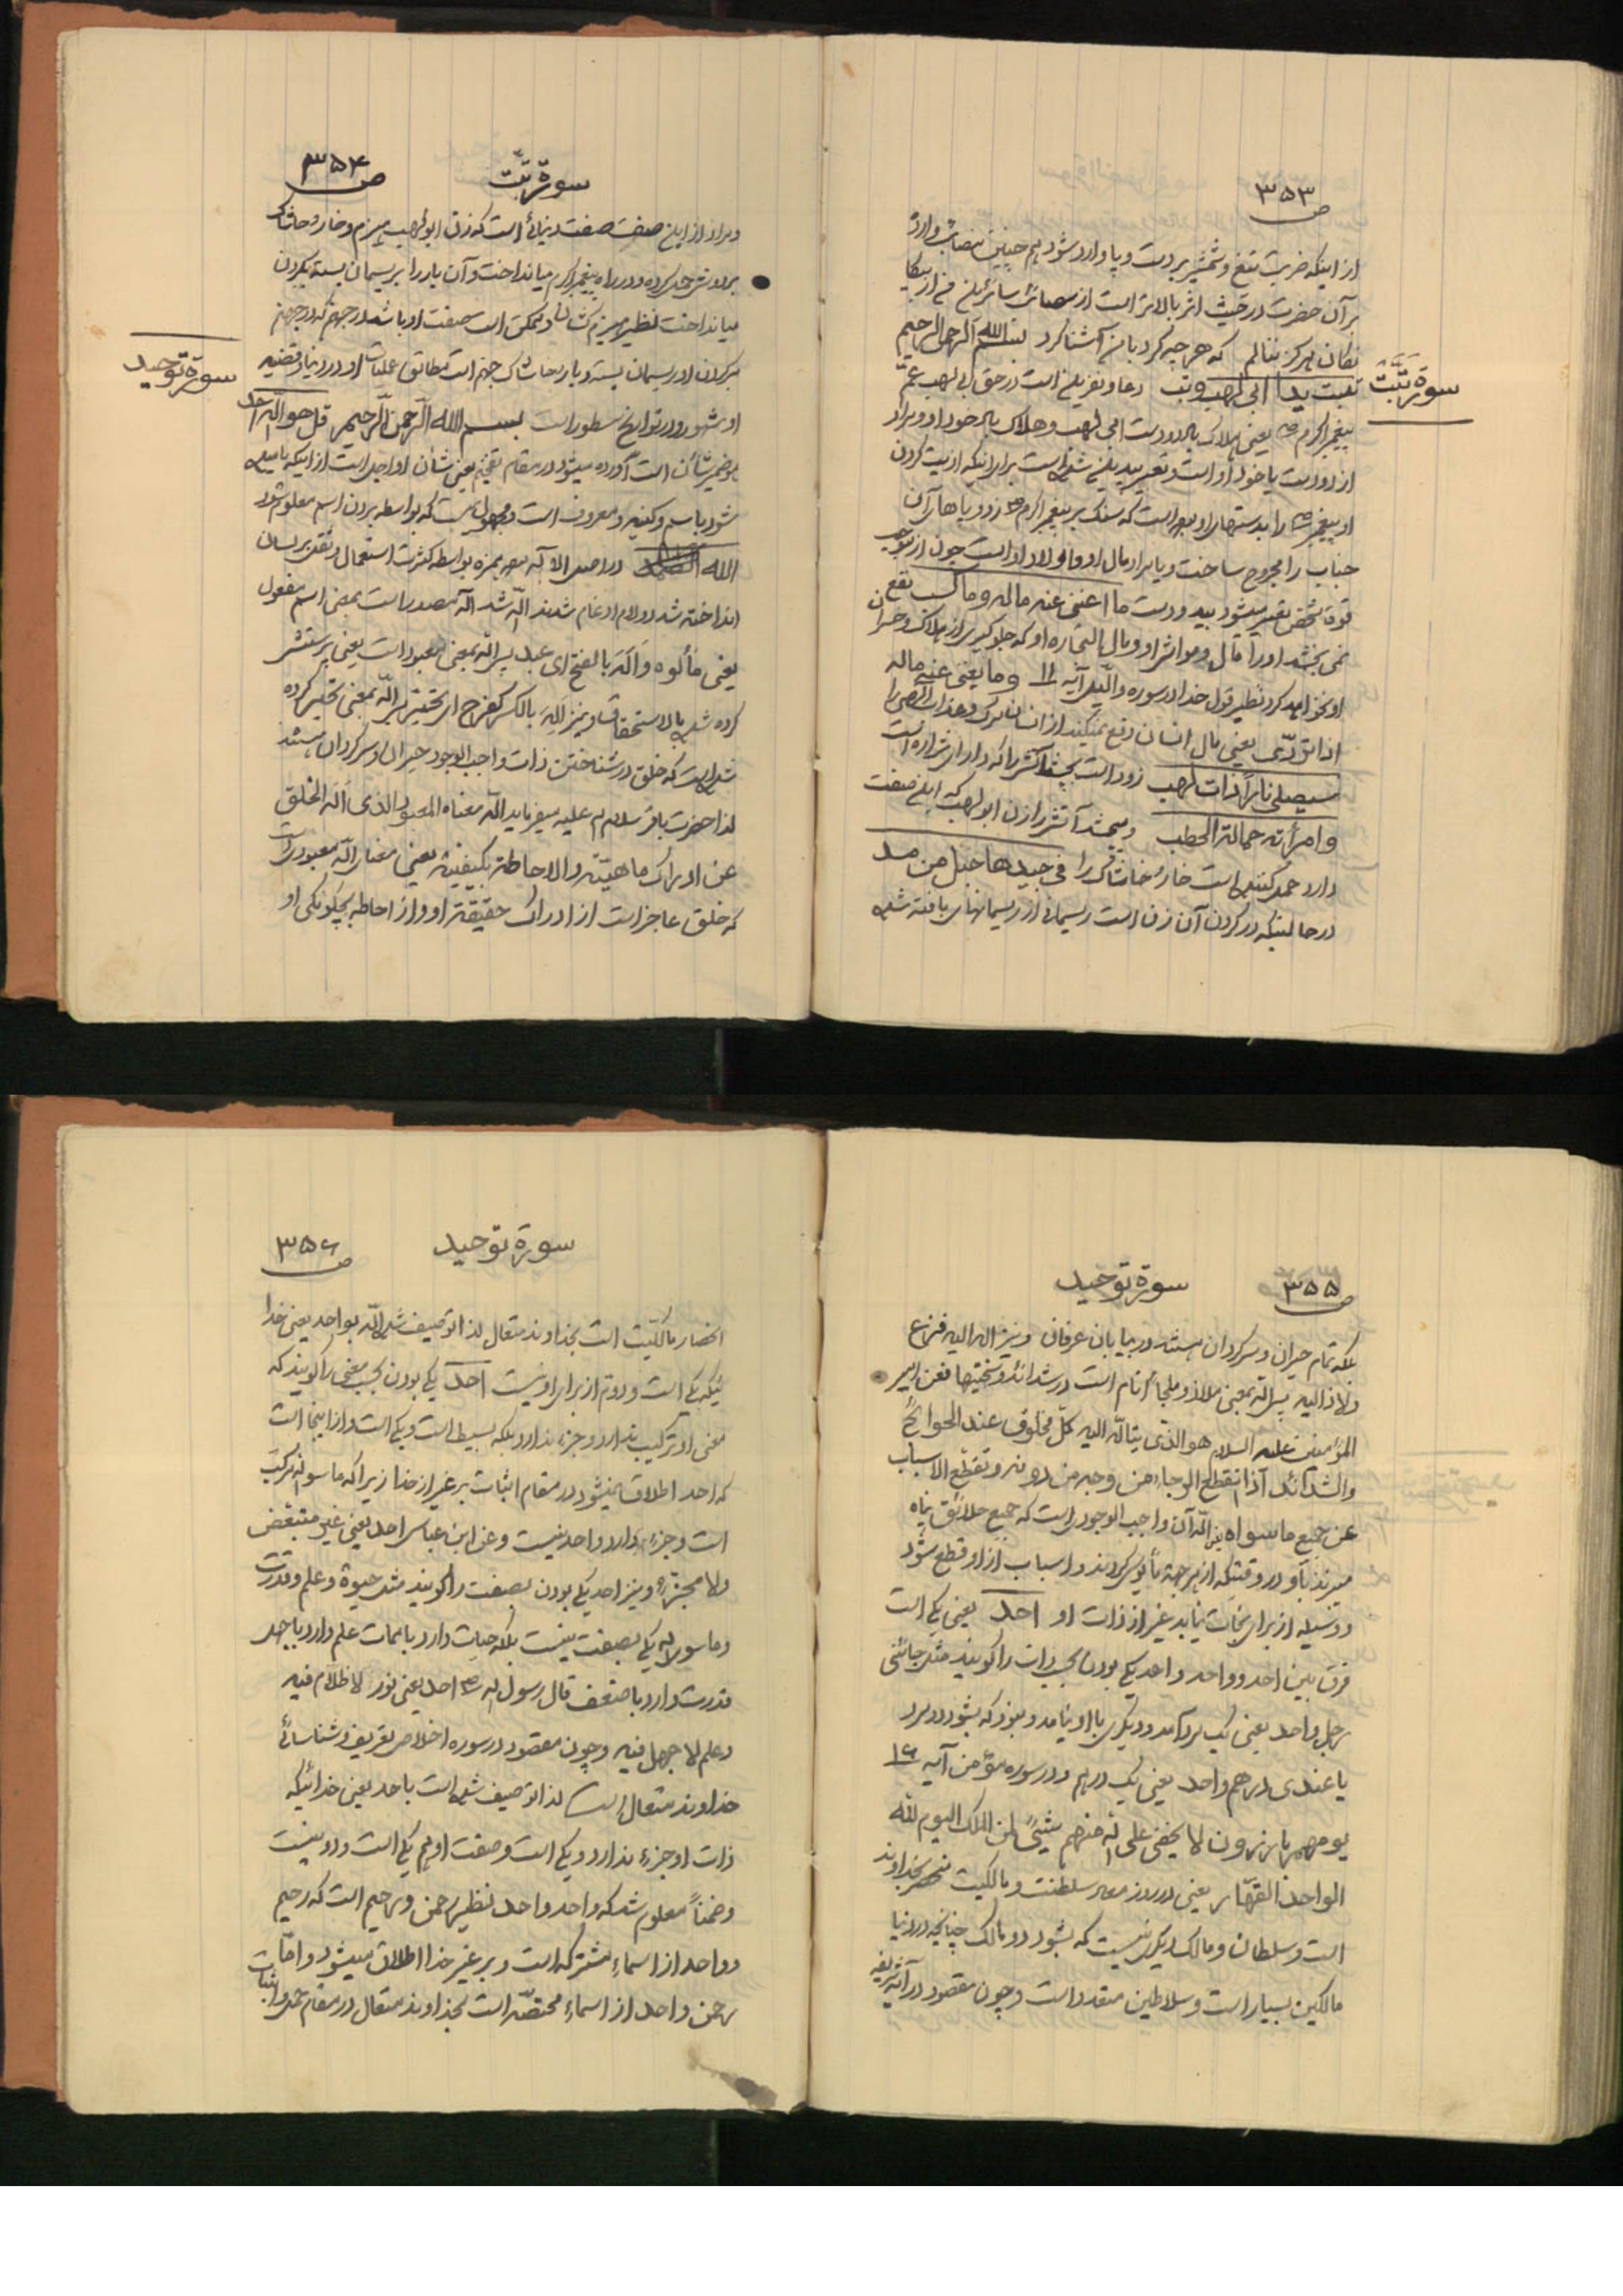 ص ۳۵۳
از اینکه ضربت تیغ و شمشیر بر دست و پا وارد شود هم چنین مصائب وارده
بر آن حضرت در حیث اثر بالاتر است از مصائب سائرین من از بیگا
نگان هرگز ننالم که هر چه کرد با من آشنا کرد بسم الله الرحمن الرحیم
سورة تَبَّتْ
تبت یدا ابی لهب و تب دعا و نفرین است در حق ابی لهب عمّ
پیغمبر اکرم ص یعنی هلاک باد دو دست ابی لهب و هلاک باد خود او و مراد
از دو دست یا خود او است و تعبیر بید شده است برای اینکه اذیت کردن
او پیغمبر ص را بدستهای او بود است که سنگ بر پیغمبر اکرم ص زد و پاهای آن
جناب را مجروح ساخت و یا مراد مال او و اولاد او است چون از
قوة شخص تعبیر میشود بید و دست ما اغنی عنه ماله و ما کسب نفع
نمی بخشد او را مال و مواشی او و مال التجاره او که جلوگیری از هلاک و خسران
او نخواهد کرد نظیر قول خدا در سوره واللّیل آیه ۱۱ وما یغنی عنه ماله
اذا تردّی یعنی مال انسان دفع نمیکند از انسان مرگ و عذاب الهی را
سیصلی ناراً ذات لهب زود است بچشد آتشی را که دارای شراره است
وامرأته حمالة الحطب و بچشد آتش را زن ابو لهب که این صفت
دارد حمل کننده است خار و خاشاک را فی جیدها حبل من مسد
در حالتیکه در گردن آن زن است ریسمانی از ریسمانهای بافته شده
سورة تبّت ص ۳۵۴
و مراد از این صفت صفت دنیائی است که زن ابو لهب هیزم و خار و خاشاک
بر دوش حمل کرده و در راه پیغمبر اکرم میانداخت و آن بار را بریسمان بسته بگردن
میانداخت نظیر هیزم کشان و ممکن است صفت او باشد در جهنم که در جهنم
بر گردن او ریسمان بسته و بار خاشاک جهنم است مطابق عملیات او در دنیا و قضیه
سورة توحید
او مشهور و در تواریخ مسطور است بسم الله الرّحمن الرّحیم قل هو الله احد
هو ضمیر شأن است آورده میشود در مقام تفخیم یعنی شأن او اجل است از اینکه نامیده
شود باسم و کنیه و معروف است و مجهول نیست که بواسطه بردن اسم معلوم شود
الله در اصل الاله بود همزه بواسطه کثرت استعمال و ثقل بر لسان
انداخته شد دو لام ادغام شدند الله شد اله مصدر است بمعنی اسم مفعول
یعنی مألوه و اَلَهَ بالفتح ای عبد پس اله بمعنی معبود است یعنی پرستش
کرده شده بالاستحقاق و نیز اَلِهَ بالکسر کفرح ای تحیّر پس الله بمعنی تحیر کرده
شده است که خلق در شناختن ذات واجب الوجود حیران و سرگردان هستند
لذا حضرت باقر سلام الله علیه میفرماید الله معناه المعبود الذی اَلِه الخلق
عن ادراک ماهیّته والاحاطة بکیفیّته یعنی معنای الله معبودی است
که خلق عاجز است از ادراک حقیقت او و از احاطه بچگونگی او
ص ۳۵۵ سورة توحید
بلکه تمام حیران و سرگردان هستند در بیابان عرفان و نیز اله الیه فزع
ولاذ الیه پس اله بمعنی ملاذ و ملجأ انام است در شدائد و سختیها فعن امیر
المؤمنین علیه السلام هو الذی یتألّه الیه کلّ مخلوق عند الحوائج
والشدائد اذا انقطع الرجاء من کل وجه من دونه و تقطّع الاسباب
عن جمیع ما سواه پس الله آن واجب الوجودی است که جمیع خلائق پناه
میبرند باو در وقتیکه از هر جهة مأیوس گردند و اسباب از او قطع شود
و وسیله از برای نجات نیابد غیر از ذات او احد یعنی یکی است
فرق بین احد و واحد واحد یکی بودن بحسب ذات را گویند مثل جائنی
رجل واحد یعنی یک مرد آمد و دیگری با او نیامد و نبود که بشود دو مرد
یا عندی درهم واحد یعنی یک درهم و در سوره مؤمن آیه ۱۶
یوم هم بارزون لا یخفی علی الله منهم شیءٌ لمن الملک الیوم لله
الواحد القهّار یعنی در روز معاد سلطنت و مالکیت منحصر بخداوند
است و سلطان و مالک دیگر نیست که بشود دو مالک چنانچه در دنیا
مالکین بسیار است و سلاطین متعدد است و چون مقصود در آیه شریفه
سورة توحید ص ۳۵۶
انحصار مالکیت است بخداوند متعال لذا توصیف شد الله بواحد یعنی خدا
ئیکه یکی است و دوم از برای او نیست احد یکی بودن بحسب معنی را گویند که
معنی او ترکیب ندارد و جزء ندارد بلکه بسیط است و یکی است و از اینجا است
که احد اطلاق نمیشود در مقام اثبات بر غیر از خدا زیرا که ما سوی الله مرکب
است و جزء دارد واحد نیست و عن ابن عباس احد یعنی غیر متبعّض
ولا مجزّء و نیز احد یکی بودن بصفت را گویند مثل حیوة و علم و قدرت
و ما سوی الله یکی بصفت نیست بلکه حیات دارد با ممات علم دارد با جهل
قدرت دارد با ضعف قال رسول الله ص احد یعنی نور لا ظلام فیه
و علم لا جهل فیه و چون مقصود در سوره اخلاص تعریف و شناسائی
خداوند متعال است لذا توصیف شده است باحد یعنی خدائیکه
ذات او جزء ندارد و یکی است و صفت او هم یکی است و دو نیست
و ضمناً معلوم شد که واحد و احد نظیر رحمن و رحیم است که رحیم
و واحد از اسماء مشترکه است و بر غیر خدا اطلاق میشود و امّا
رحمن و احد از اسماء مختصّه است بخداوند متعال در مقام حمد و اثبات